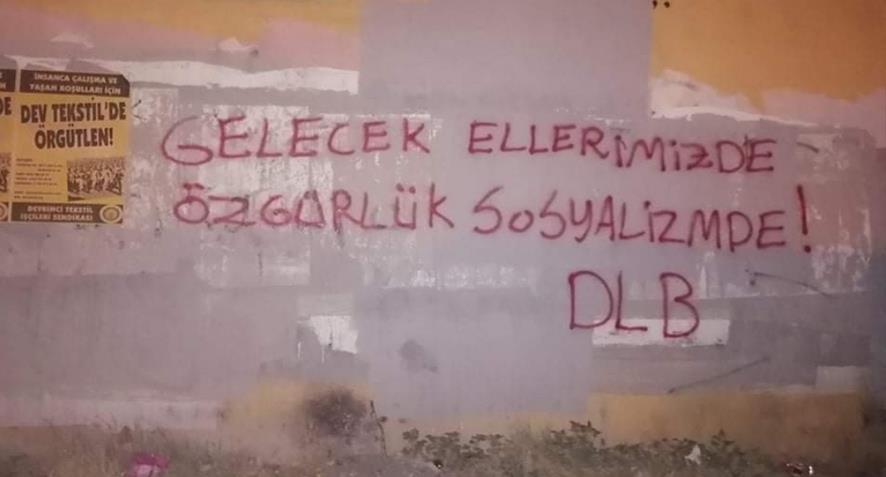 İNSANCA ÇALIŞMA VE
YAŞAM KOŞULLARI İÇİN
DEV TEKSTİL'DE
ÖRGÜTLEN!
DEVRİMCİ TEKSTİL
İŞÇİLERİ SENDİKASI
GELECEK ELLERİMİZDE
ÖZGÜRLÜK SOSYALİZMDE!
DLB